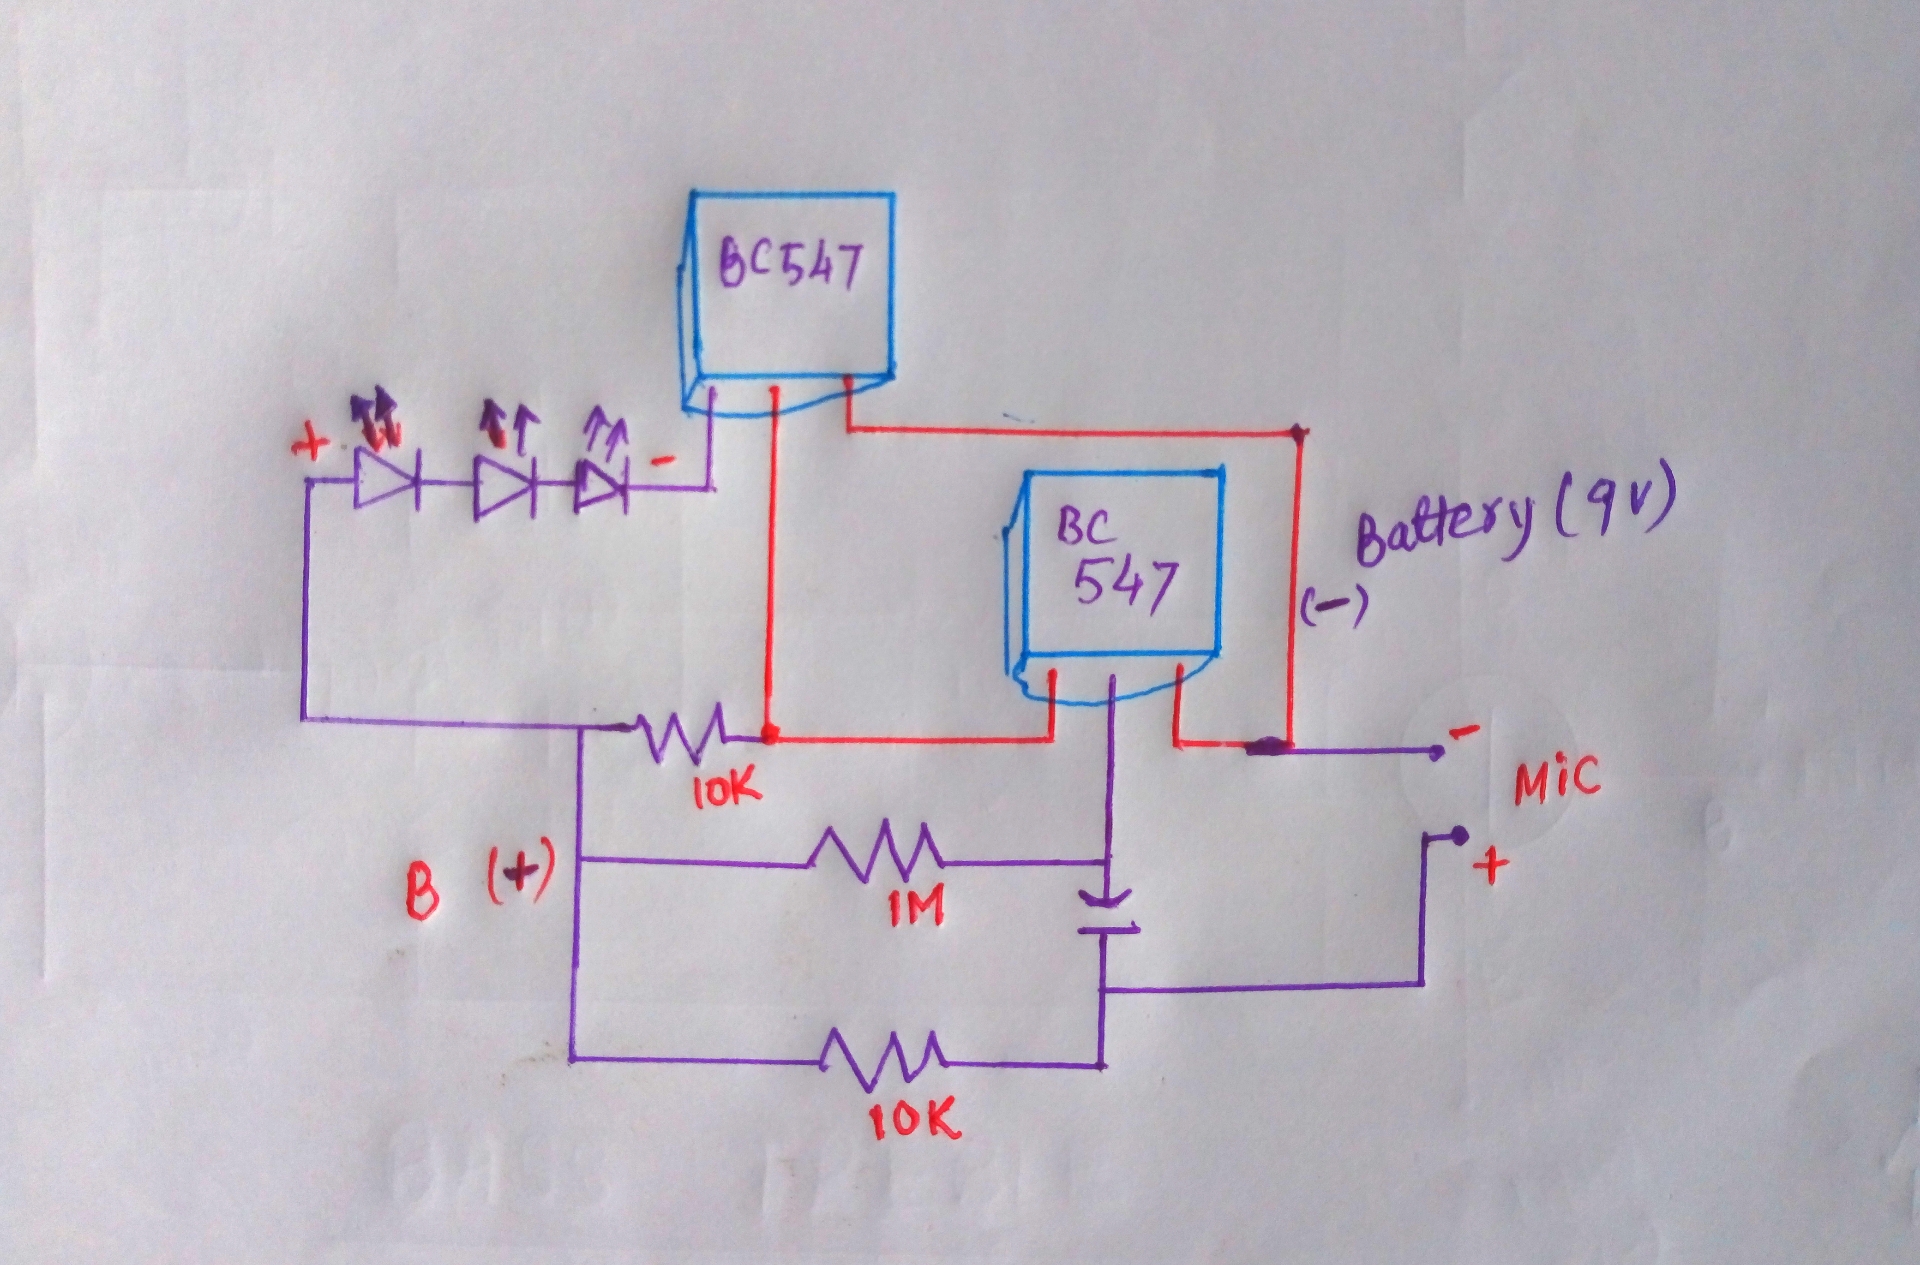 BC547
+
-
BC
547
Battery (9v)
(-)
-
MiC
10K
+
B (+)
1M
10K